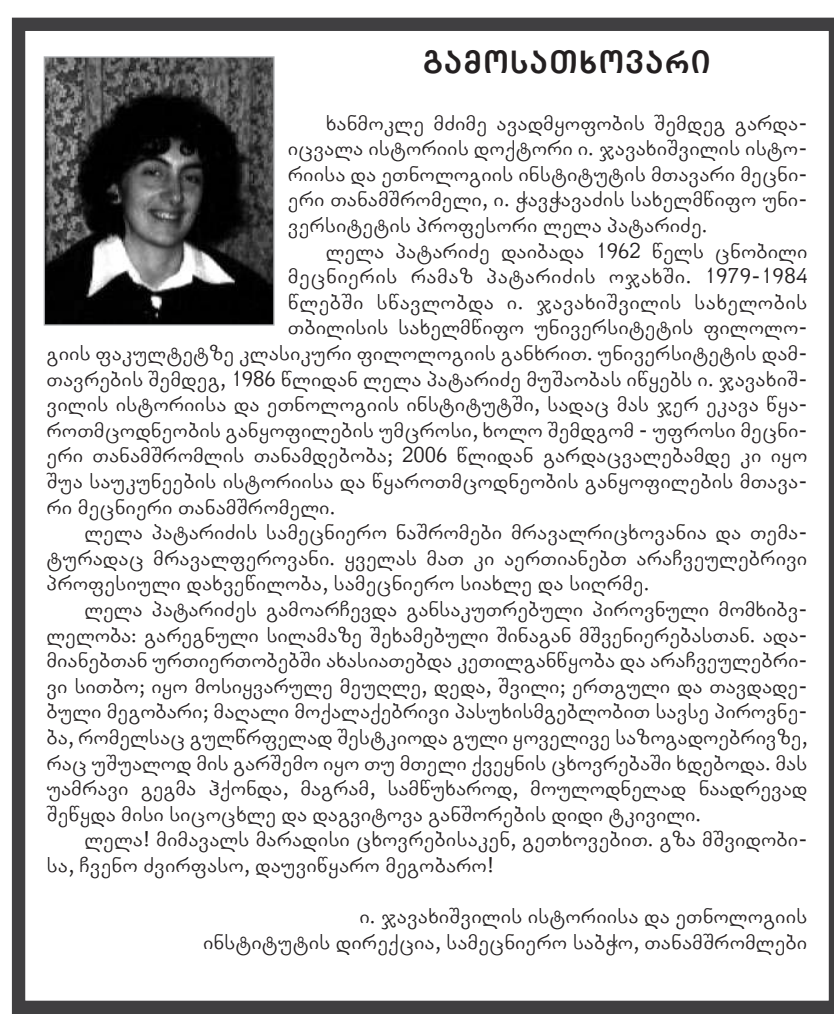 გამოსათხოვარი
ხანმოკლე მძიმე ავადმყოფობის შემდეგ გარდა-
იცვალა ისტორიის დოქტორი ი. ჯავახიშვილის ისტო-
რიისა და ეთნოლოგიის ინსტიტუტის მთავარი მეცნი-
ერი თანამშრომელი, ი. ჭავჭავაძის სახელმწიფო უნი-
ვერსიტეტის პროფესორი ლელა პატარიძე.
ლელა პატარიძე დაიბადა 1962 წელს ცნობილი
მეცნიერის რამაზ პატარიძის ოჯახში. 1979-1984
წლებში სწავლობდა ი. ჯავახიშვილის სახელობის
თბილისის სახელმწიფო უნივერსიტეტის ფილოლო-
გიის ფაკულტეტზე კლასიკური ფილოლოგიის განხრით. უნივერსიტეტის დამ-
თავრების შემდეგ, 1986 წლიდან ლელა პატარიძე მუშაობას იწყებს ი. ჯავახიშ-
ვილის ისტორიისა და ეთნოლოგიის ინსტიტუტში, სადაც მას ჯერ ეკავა წყა-
როთმცოდნეობის განყოფილების უმცროსი, ხოლო შემდგომ - უფროსი მეცნი-
ერი თანამშრომლის თანამდებობა; 2006 წლიდან გარდაცვალებამდე კი იყო
შუა საუკუნეების ისტორიისა და წყაროთმცოდნეობის განყოფილების მთავა-
რი მეცნიერი თანამშრომელი.
ლელა პატარიძის სამეცნიერო ნაშრომები მრავალრიცხოვანია და თემა-
ტურადაც მრავალფეროვანი. ყველას მათ კი აერთიანებთ არაჩვეულებრივი
პროფესიული დახვეწილობა, სამეცნიერო სიახლე და სიღრმე.
ლელა პატარიძეს გამოარჩევდა განსაკუთრებული პიროვნული მომხიბვ-
ლელობა: გარეგნული სილამაზე შეხამებული შინაგან მშვენიერებასთან. ადა-
მიანებთან ურთიერთობებში ახასიათებდა კეთილგანწყობა და არაჩვეულებრი-
ვი სითბო; იყო მოსიყვარულე მეუღლე, დედა, შვილი; ერთგული და თავდადე-
ბული მეგობარი; მაღალი მოქალაქებრივი პასუხისმგებლობით სავსე პიროვნე-
ბა, რომელსაც გულწრფელად შესტკიოდა გული ყოველივე საზოგადოებრივზე,
რაც უშუალოდ მის გარშემო იყო თუ მთელი ქვეყნის ცხოვრებაში ხდებოდა. მას
უამრავი გეგმა ჰქონდა, მაგრამ, სამწუხაროდ, მოულოდნელად ნაადრევად
შეწყდა მისი სიცოცხლე და დაგვიტოვა განშორების დიდი ტკივილი.
ლელა! მიმავალს მარადისი ცხოვრებისაკენ, გეთხოვებით. გზა მშვიდობი-
სა, ჩვენო ძვირფასო, დაუვიწყარო მეგობარო!
ი. ჯავახიშვილის ისტორიისა და ეთნოლოგიის
ინსტიტუტის დირექცია, სამეცნიერო საბჭო, თანამშრომლები